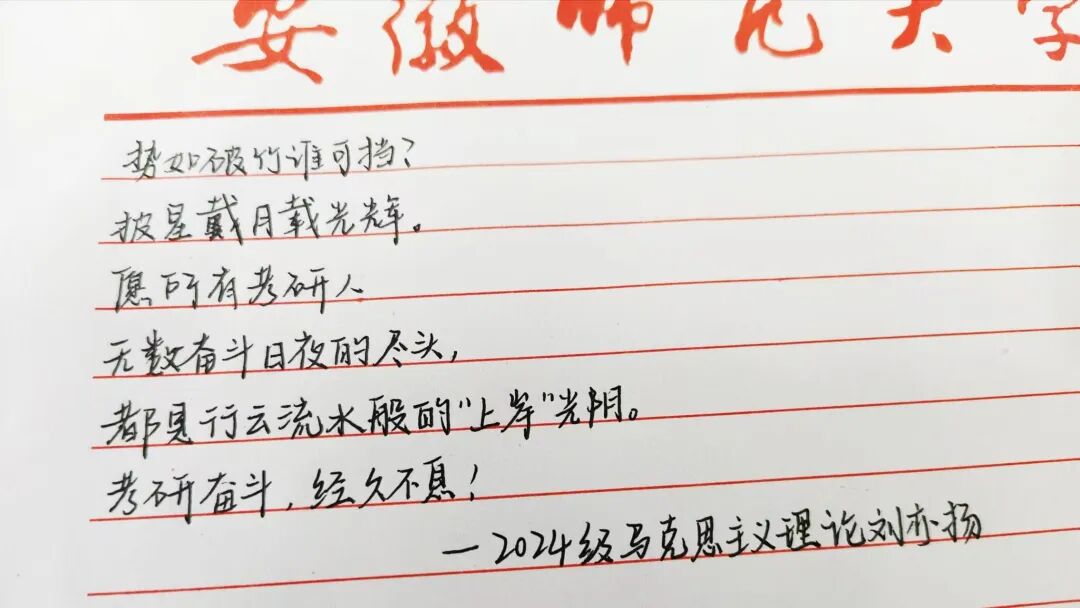 安徽师范大学
势如破竹谁可挡？
披星戴月载光辉。
愿所有考研人
无数奋斗日夜的尽头，
都是行云流水般的“上岸”光阴。
考研奋斗，经久不息！
—2024级马克思主义理论刘亦扬